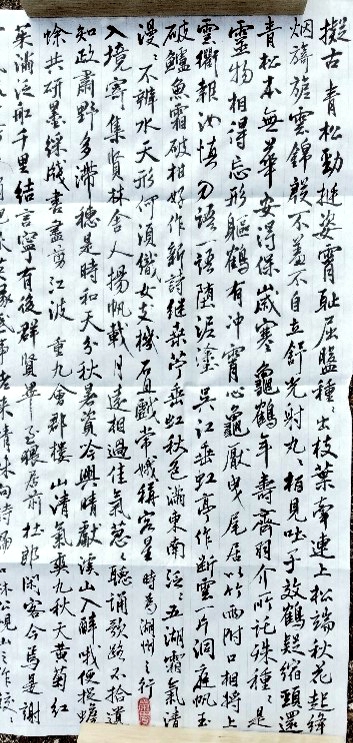 擬古青松勁挺姿霄恥屈盤種〻出枝葉牽連上松端秋花起絳
烟旖旎雲錦殷不羞不自立舒光射丸〻柏見吐子效鶴疑縮頸還
青松本無華安得保歲寒龜鶴年壽齊羽介所託殊種〻是
靈物相得忘形軀鶴有沖霄心龜厭曳尾居以竹兩附口相將上
雲衢報汝慎勿語一語墮泥塗吳江垂虹亭作斷雲一片洞庭帆玉
破鱸魚霜破柑好作新詩繼桑苧垂虹秋色滿東南泛〻五湖霜氣清
漫不辨水天形何須織女支機石且戲常娥稱客星時為湖州之行
入境寄集賢林舍人揚帆載月遠相過佳氣蔥〻聽誦歌路不拾遺
知政肅野多滯穗是時和天分秋暑資吟興晴獻溪山入醉哦便捉蟾
蜍共研墨綵牋書盡剪江波重九會郡樓山清氣爽九秋天黃菊紅
茱滿泛船千里結言寧有後群賢畢至猥居前杜郎閑客今焉是謝